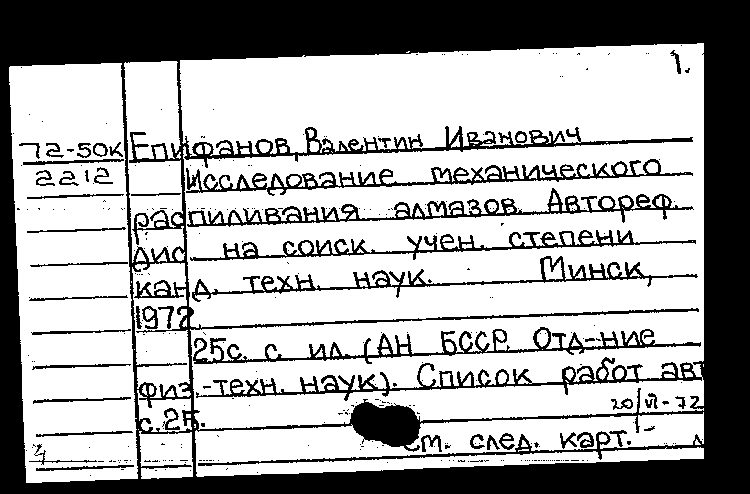 1.
72-50к Епифанов, Валентин Иванович
2212 Исследование механического
распиливания алмазов. Автореф.
дис на соиск. учен. степени
канд. техн. наук. Минск,
1972.
25с. с ил. (АН БССР. Отд-ние
физ.-техн. наук). Список работ авт
с.25.
20/VI-72
См. след. карт.